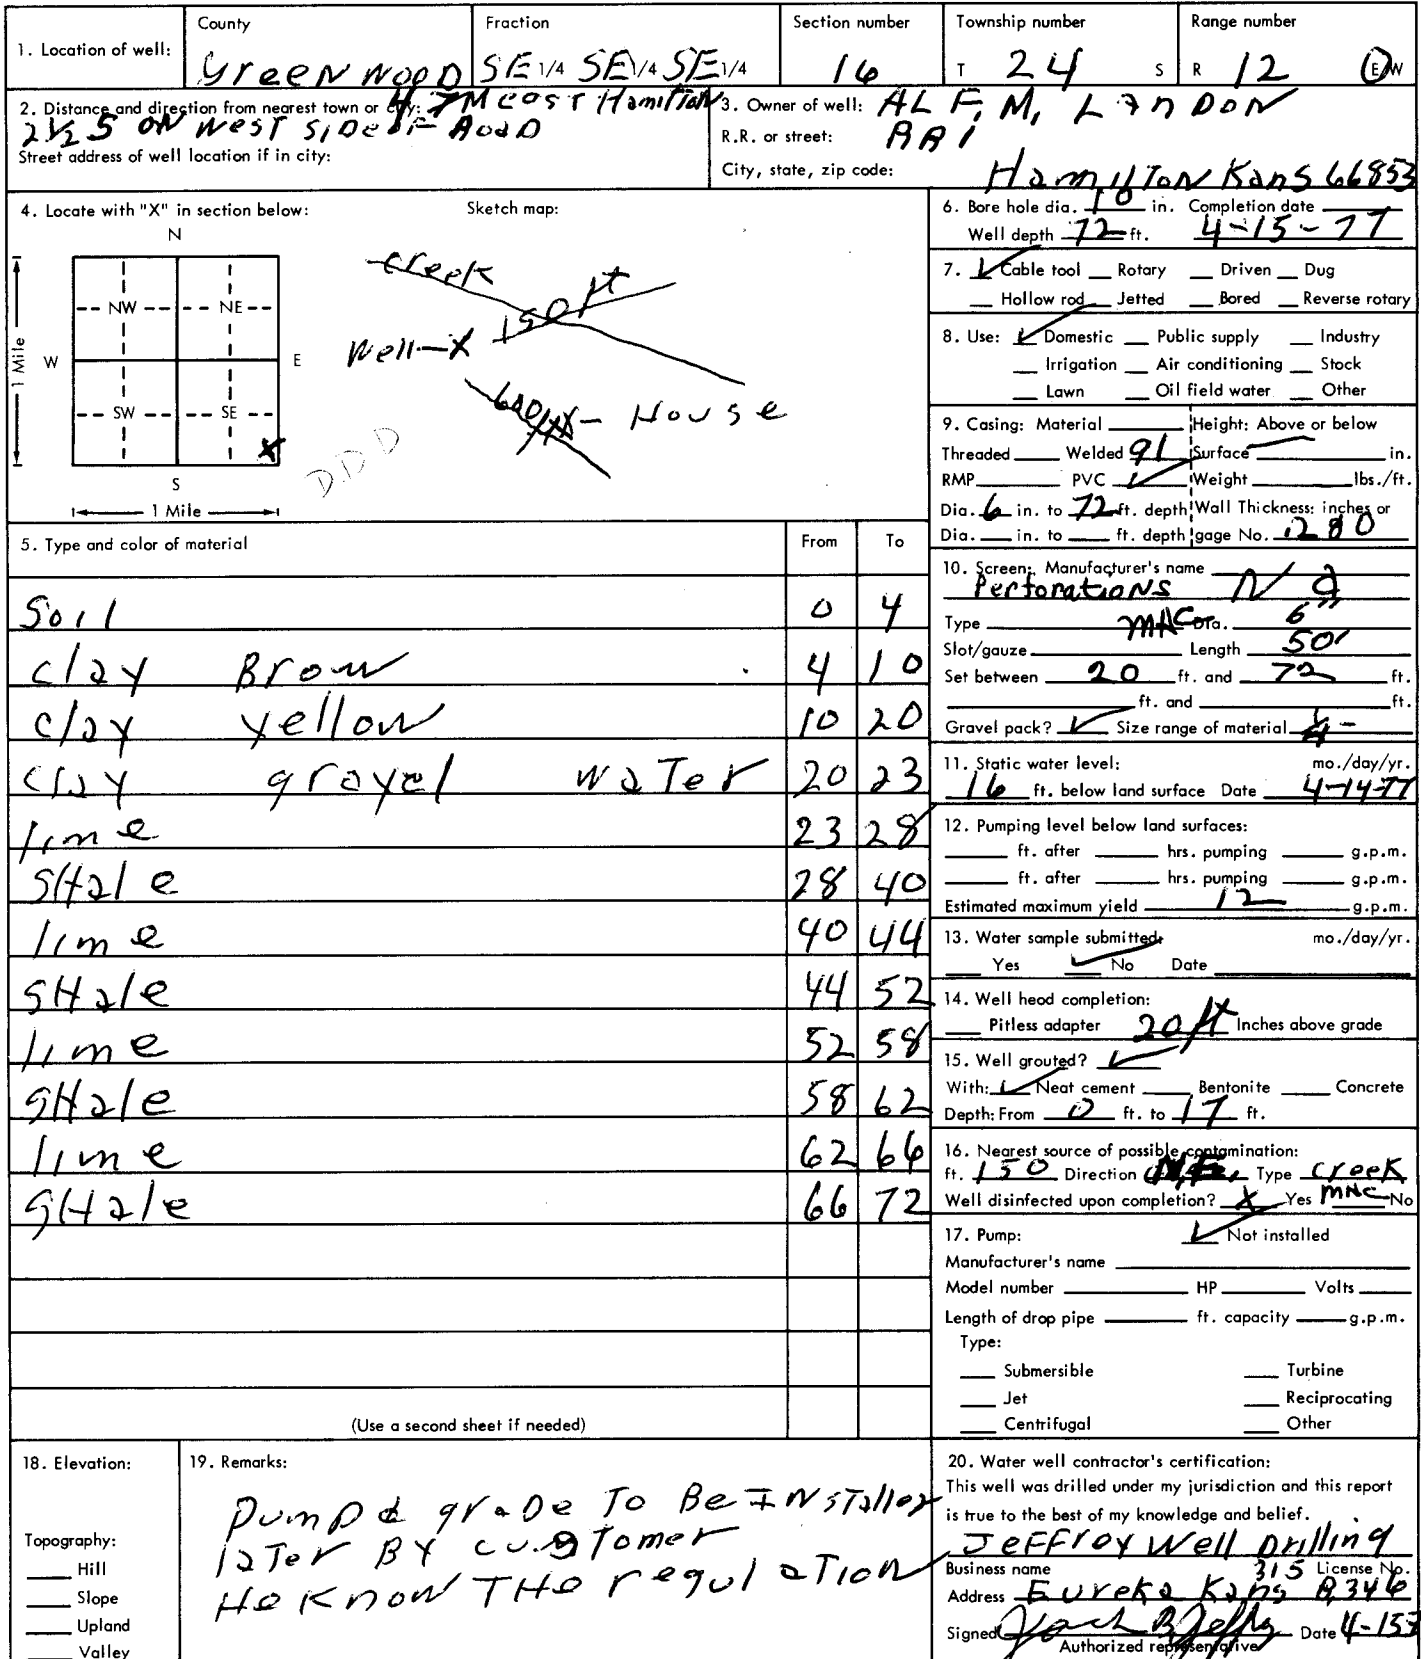 County Fraction Section number Township number Range number
1. Location of well: GreenWOOD SE 1/4 SE 1/4 SE 1/4 16 T 24 S R 12 E/W
2. Distance and direction from nearest town or city: 7M east Hamilton
2 1/2 S ON WEST SIDE OF ROAD
Street address of well location if in city:
3. Owner of well: ALF, M, LANDON
R.R. or street: RR1
City, state, zip code: HamilTON Kans 66853
4. Locate with "X" in section below: Sketch map:
N
NW NE
W E
SW SE
X
S
1 Mile
1 Mile
creek
150 ft
Well-X
600 ft X- House
D.D.D
5. Type and color of material From To
Soil 0 4
clay Brow 4 10
clay yellow 10 20
clay gravel waTer 20 23
lime 23 28
SHale 28 40
lime 40 44
SHale 44 52
lime 52 58
SHale 58 62
lime 62 66
SHale 66 72
(Use a second sheet if needed)
6. Bore hole dia. 10 in. Completion date
Well depth 72 ft. 4-15-77
7. Cable tool Rotary Driven Dug
Hollow rod Jetted Bored Reverse rotary
8. Use: Domestic Public supply Industry
Irrigation Air conditioning Stock
Lawn Oil field water Other
9. Casing: Material Height: Above or below
Threaded Welded 91 Surface in.
RMP PVC Weight lbs./ft.
Dia. 6 in. to 72 ft. depth Wall Thickness: inches or
Dia. in. to ft. depth gage No. .280
10. Screen: Manufacturer's name
Perforations
Type MHC Dia. 6"
Slot/gauze Length 50'
Set between 20 ft. and 72 ft.
ft. and ft.
Gravel pack? Size range of material
11. Static water level: mo./day/yr.
16 ft. below land surface Date 4-14-77
12. Pumping level below land surfaces:
ft. after hrs. pumping g.p.m.
ft. after hrs. pumping g.p.m.
Estimated maximum yield 12 g.p.m.
13. Water sample submitted: mo./day/yr.
Yes No Date
14. Well head completion:
Pitless adapter 20 ft Inches above grade
15. Well grouted?
With: Neat cement Bentonite Concrete
Depth: From 0 ft. to 17 ft.
16. Nearest source of possible contamination:
ft. 150 Direction N,E, Type creek
Well disinfected upon completion? X Yes MHC No
17. Pump: Not installed
Manufacturer's name
Model number HP Volts
Length of drop pipe ft. capacity g.p.m.
Type:
Submersible Turbine
Jet Reciprocating
Centrifugal Other
18. Elevation:
Topography:
Hill
Slope
Upland
Valley
19. Remarks:
Pump & graDe To Be INSTalled
laTer BY cusTomer
He KNOW THe regulaTION
20. Water well contractor's certification:
This well was drilled under my jurisdiction and this report
is true to the best of my knowledge and belief.
JeFFrey Well Drilling
Business name 315 License No.
Address Eureka Kans B,346
Signed Date 4-15
Authorized representative